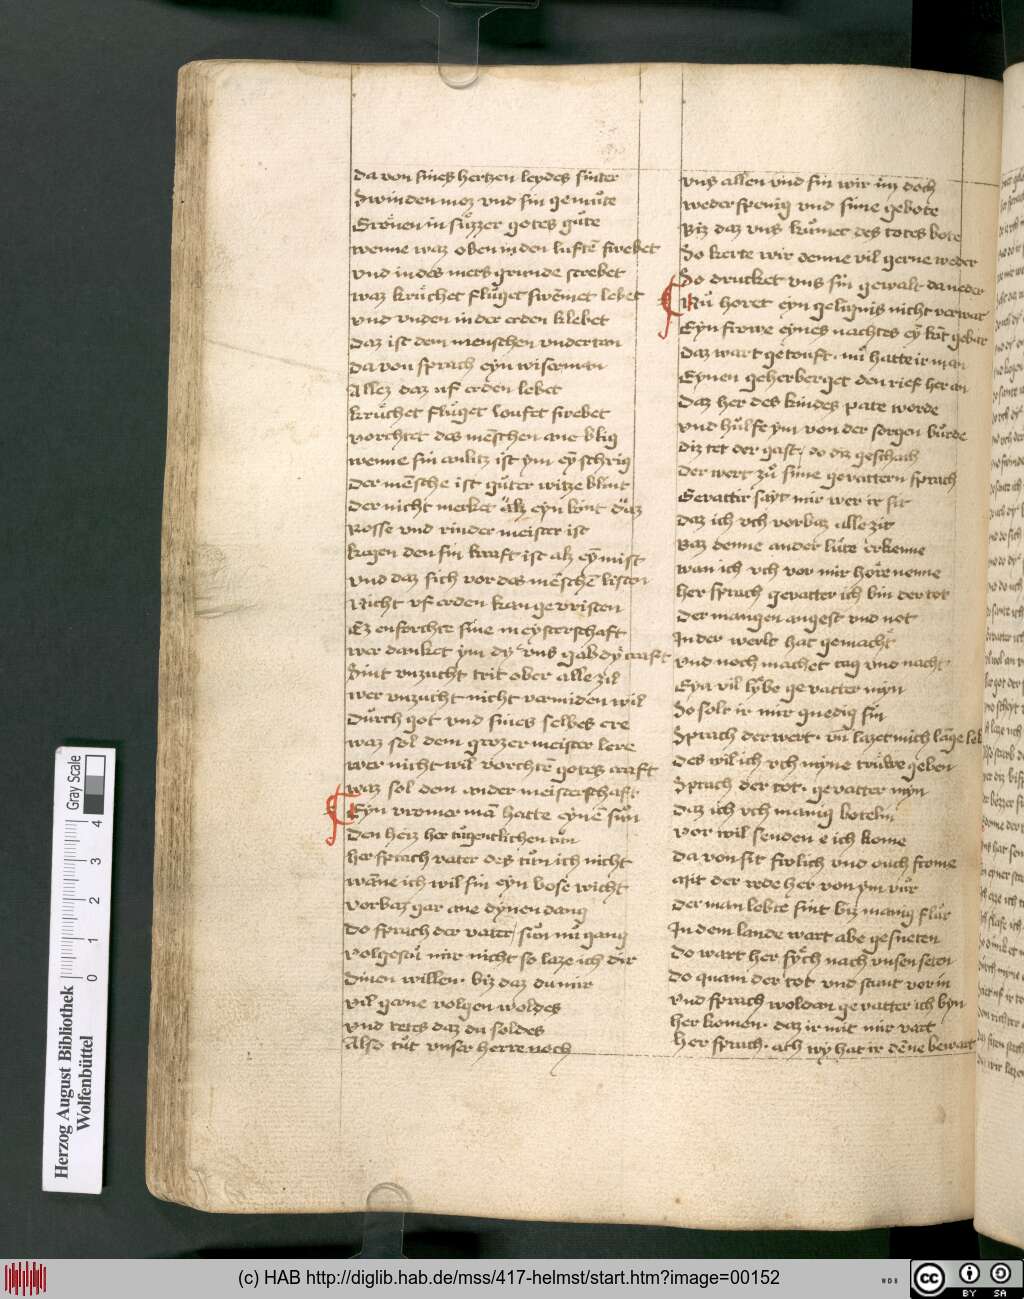 da von sines hertzen leydes sinter
Swinden moz vnd sin gemuͦte
Gronen in suͦzzer gotes guͦte
wenne waz oben in den luftē swebet
vnd in des mers grunde strebet
waz kruͤchet fluͤget swēmet lebet
vnd vnden in der erden klebet
daz ist dem menschen vndertan
da von sprach eyn wiserman
Allez daz uf erden lebet
kruͤchet fluͤget loufet swebet
vorchtet des mēschen ane blig
wenne sin antlitz ist ym eyͣ schrig
der mēsche ist guͦter witze blint
der nicht merket alz eyn kint daz
Rosse vnd rinder meister ist
kegen den sin kraft ist alz eyͣ mist
vnd daz sich vor des mēschē listen
Nicht vf erden kan gevristen
Ez enforchte sine meysterschaft
wer danket ym dyͤ vns gab dyͤ craft
Sint vnzucht trit ober alle zil
wer vnzucht nicht vermiden wil
durch got vnd sines selbes ere
waz sol dem grozer meister lere
wer nicht wil vorchtē gotes craft
waz sol dem ander meisterschaft
Eyn vromer mā hatte eynē suͦn
den heiz her tuͦgentlichen tuͦn
her sprach vater des tuͦn ich nicht
wāne ich wil sin eyn bose wicht
vorbaz gar ane dynen dang
do sprach der vater suͦn nuͦ gang
volgestuͦ mir nicht so laze ich dir
dinen willen biz daz du mir
vil gerne volgen woldes
vnd tetes daz du soldes
Also tuͦt vnser herre noch
vns allen vnd sin wir im doch
weder spenig vnd sime gebote
Biz daz vns kuͦmet des totes bote
So kerte wir denne vil gerne weder
So drucket vns sin gewalt daneder
Nuͦ horet eyn gelignis nicht verwar
Eyn frowe eynes nachtes eyͣ kīt gebar
daz wart getouft. nuͦ hatte ir man
Eynen geherberget den rief her an
daz her des kindes pate worde
vnd huͤlfe ym von der sorgen buͤrde
diz tet der gast, do diz geschach
der wert zuͦ sime gevattern sprach
Gevattir sayt mir wer ir sit
daz ich vch vorbaz alle zit
Baz denne ander luͤte erkenne
wan ich vch vor mir hore nenne
her sprach gevatter ich bin der tot
der mangen angest vnd not
In der werlt hat gemacht
vnd noch machet tag vnd nacht
Eya vil lybe gevatter myn
So solt ir mir gnedig sin
Sprach der wert. vn̄ lazet mich lāge leb
des wil ich vch myne truͤwe geben
Sprach der tot. gevatter myn
daz ich vch manig botelin
vor wil senden e ich kome
da von sit frolich vnd ouch frome
Mit der rede her von ym vuͦr
der man lebte sint biz manig fluͦr
In dem lande wart abe gesneten
do wart her syͤch nach vnsen seten
do quam der tot vnd stunt vor in
vnd sprach woldan gevatter ich byn
her komen. daz ir mit mir vart
Her sprach. ach wy hat ir dēne bewart
Herzog August Bibliothek
Wolfenbüttel
0 1 2 3 4
Gray Scale
(c) HAB http://diglib.hab.de/mss/417-helmst/start.htm?image=00152
WDB
cc BY SA